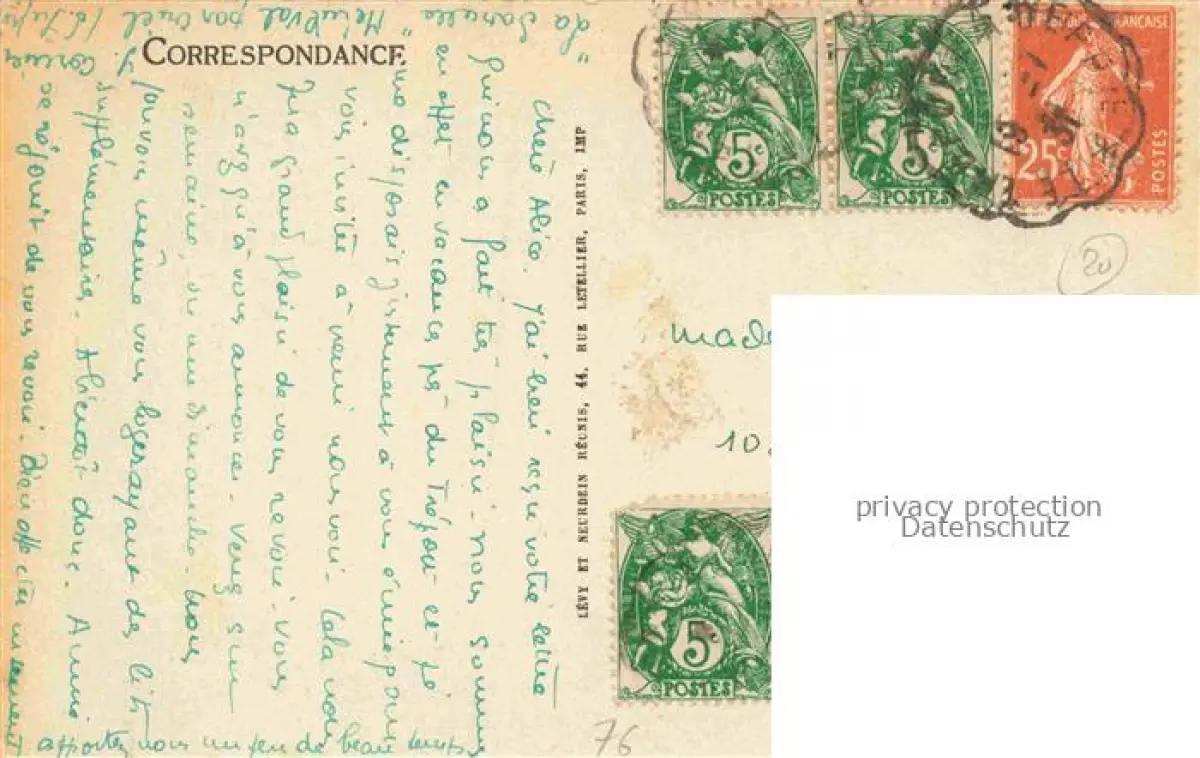 CORRESPONDANCE
"La Sarcelle
"
Mesnil Val par Criel
Chère Alice. J'ai bien reçu votre lettre
qui nous a fait très plaisir. Nous sommes
en effet en vacances près du Tréport et je
me disposais justement à vous écrire pour
vous inviter à venir nous voir. Cela nous
fera grand plaisir de vous revoir. Vous
n'avez qu'à vous annoncer. Venez une
semaine, ou un dimanche. Nous
pouvons même vous loger ayant des lits
supplémentaires. A bientôt donc. Annie
se réjouit de vous revoir. Bien affectueusement
apportez nous un peu de beau temps
LÉVY ET NEURDEIN RÉUNIS, 44, RUE LETELLIER, PARIS, IMP
5c
POSTES
5c
POSTES
RÉPUBLIQUE FRANÇAISE
25c
POSTES
20
made
10
5c
POSTES
76
privacy protection
Datenschutz